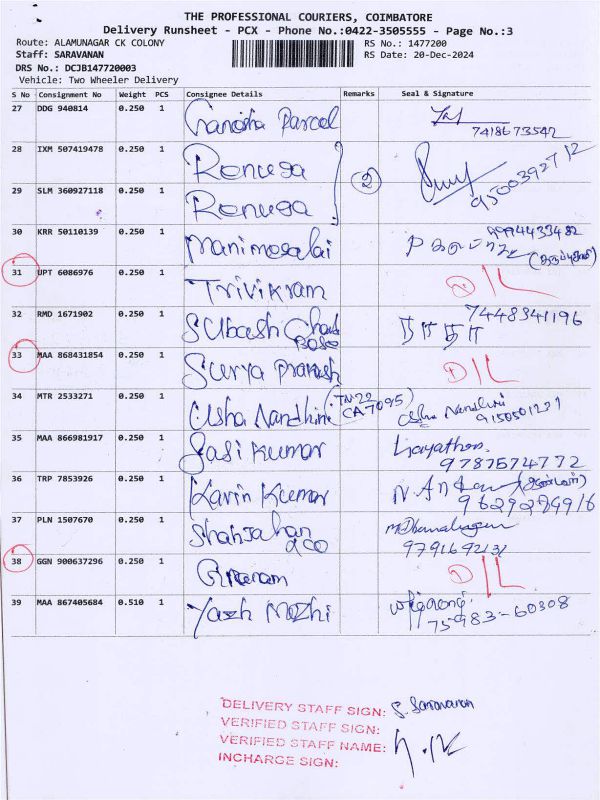 THE PROFESSIONAL COURIERS, COIMBATORE
Delivery Runsheet - PCX - Phone No.:0422-3505555 - Page No.:3
Route: ALAMUNAGAR CK COLONY RS No.: 1477200
Staff: SARAVANAN RS Date: 20-Dec-2024
DRS No.: DCJB147720003
Vehicle: Two Wheeler Delivery
S No Consignment No Weight PCS Consignee Details Remarks Seal & Signature
27 DDG 940814 0.250 1 Ganesha Parcel
7418673542
28 IXM 507419478 0.250 1 Renuga 2
9500392712
29 SLM 360927118 0.250 1 Renuga
30 KRR 50110139 0.250 1 Manimegalai 9994433482
31 UPT 6086976 0.250 1 Trivikram D/L
32 RMD 1671902 0.250 1 Subash Chand 7448341196
Bose
33 MAA 868431854 0.250 1 Surya Prakash D/L
34 MTR 2533271 0.250 1 Usha Nandhini (TN22 CA7095) Usha Nandhini
9150501221
35 MAA 866981917 0.250 1 Sasi Kumar
9787574772
36 TRP 7853926 0.250 1 Kavin Kumar
9629274916
37 PLN 1507670 0.250 1 Shahjahan
&CO
9791692132
38 GGN 900637296 0.250 1 D/L
39 MAA 867405684 0.510 1 Yazh Mozhi
75983-60308
DELIVERY STAFF SIGN: S. Saravanan
VERIFIED STAFF SIGN:
VERIFIED STAFF NAME:
INCHARGE SIGN: